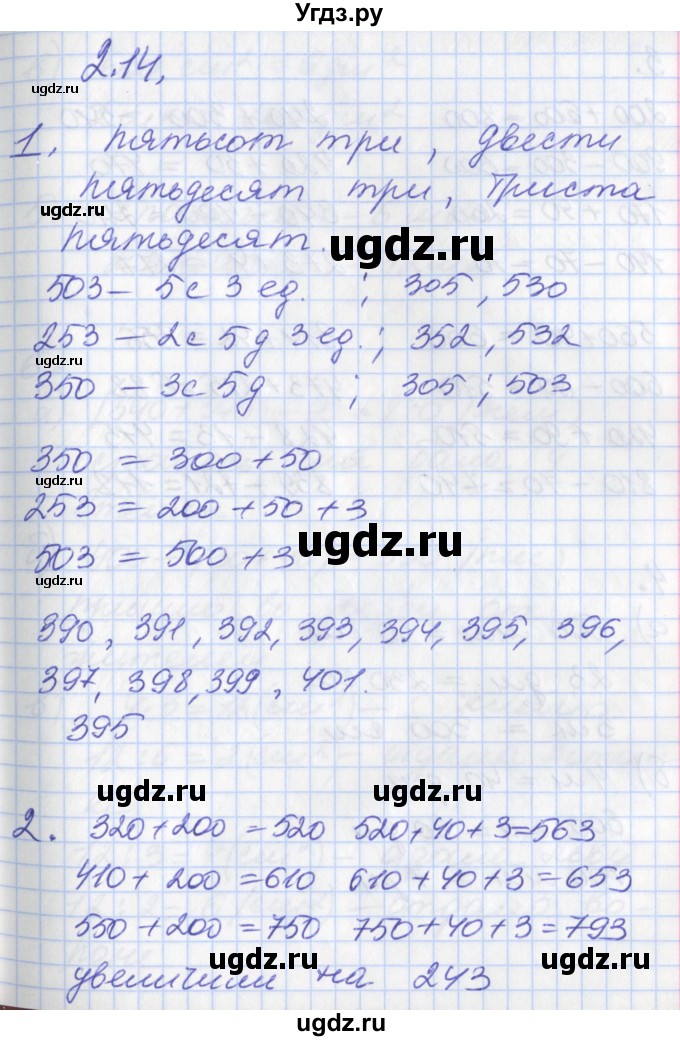 Угдз.ру
2.14.
ugdz.ru
1. пятьсот три, двести
пятьдесят три, триста
ugdz.ru
пятьдесят.
ugdz.ru
503 – 5с 3 ед. ; 305, 530
253 – 2с 5д 3ед.; 352, 532
ugdz.ru
350 – 3с 5д ; 305 ; 503
350 = 300 + 50
253 = 200 + 50 + 3
ugdz.ru
503 = 500 + 3
ugdz.ru
390, 391, 392, 393, 394, 395, 396,
397, 398, 399, 401.
395
ugdz.ru ugdz.ru
2. 320 + 200 = 520 520 + 40 + 3 = 563
410 + 200 = 610 610 + 40 + 3 = 653
550 + 200 = 750 750 + 40 + 3 = 793
ugdz.ru ugdz.ru
увеличили на 243
ugdz.ru